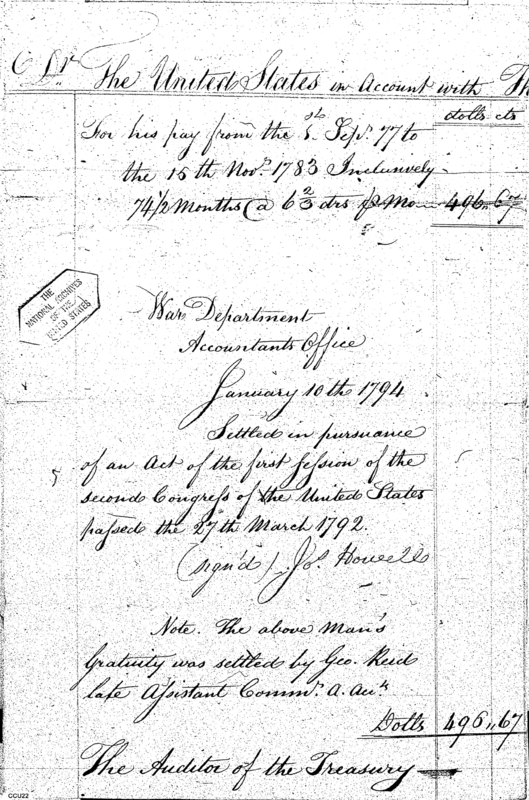 Dr The United States in Account with Th
dolls cts
For his pay from the 1st Sepr. 77 to
the 15th Novr. 1783 Inclusively
74 1/2 Months @ 6 2/3 drs pr Mo 496,, 67
THE
NATIONAL ARCHIVES
OF THE
UNITED STATES
War Department
Accountants Office
January 10th 1794
Settled in pursuance
of an Act of the first Session of the
second Congress of the United States
passed the 27th March 1792.
(sign'd) Jos. Howell
Note. The above Man's
Gratuity was settled by Geo. Reid
late Assistant Commr. A. Accts
Dolls 496,, 67
The Auditor of the Treasury
CCU22